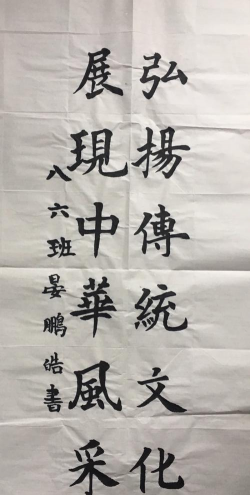 弘揚傳統文化
展現中華風采
八六班晏鵬皓書